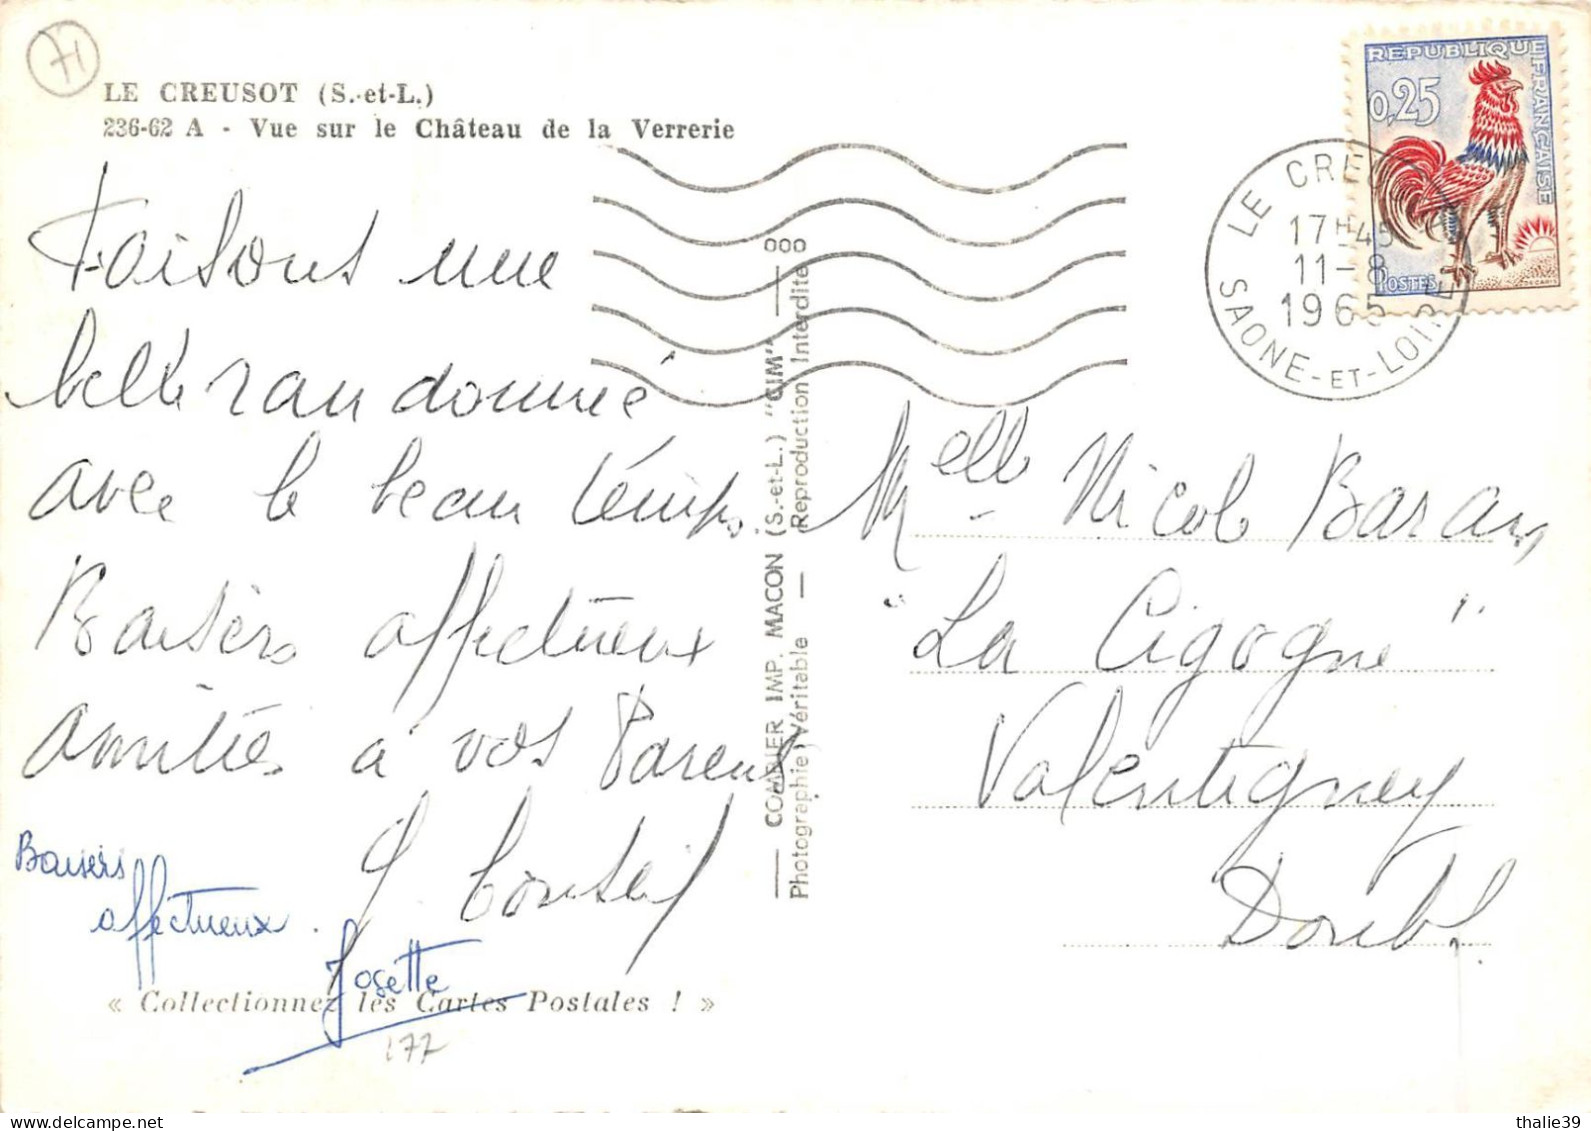 71
LE CREUSOT (S.-et-L.)
236-62 A - Vue sur le Château de la Verrerie
Faisons une
belle randonnée
avec le beau temps
Baisers affectueux
amitiés à vos Parents
J. Conseil
Baisers
affectueux.
Josette
« Collectionnez les Cartes Postales ! »
177
COMBIER IMP. MACON (S.-et-L.) "CIM"
Photographie Véritable — Reproduction Interdite
REPUBLIQUE FRANÇAISE
0,25
POSTES
DECARIS
LE CREU
17H45
11-8
1965
SAONE-ET-LOIRE
Melle Nicole
"La Cigogne"
Valentigney
Doubs
thalie39